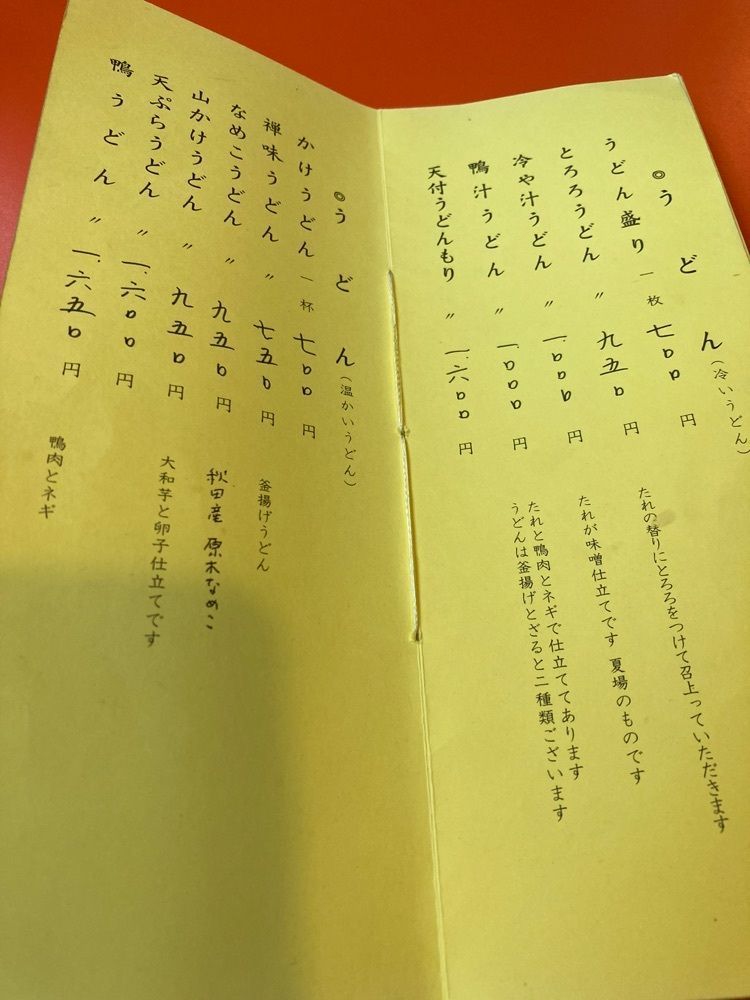 ◎うどん(冷いうどん)
うどん盛り 一枚 七〇〇円
とろろうどん 〃 九五〇円 たれの替りにとろろをつけて召上っていただきます
冷や汁うどん 〃 一.〇〇〇円 たれが味噌仕立てです 夏場のものです
鴨汁うどん 〃 一.六〇〇円 たれと鴨肉とネギで仕立ててあります
うどんは釜揚げとざると二種類ございます
天付うどんもり 〃
◎うどん(温かいうどん)
かけうどん 一杯 七〇〇円
禅味うどん 〃 七五〇円 釜揚げうどん
なめこうどん 〃 九五〇円 秋田産 原木なめこ
山かけうどん 〃 九五〇円 大和芋と卵子仕立てです
天ぷらうどん 〃 一.六〇〇円
鴨うどん 〃 一.六五〇円 鴨肉とネギ